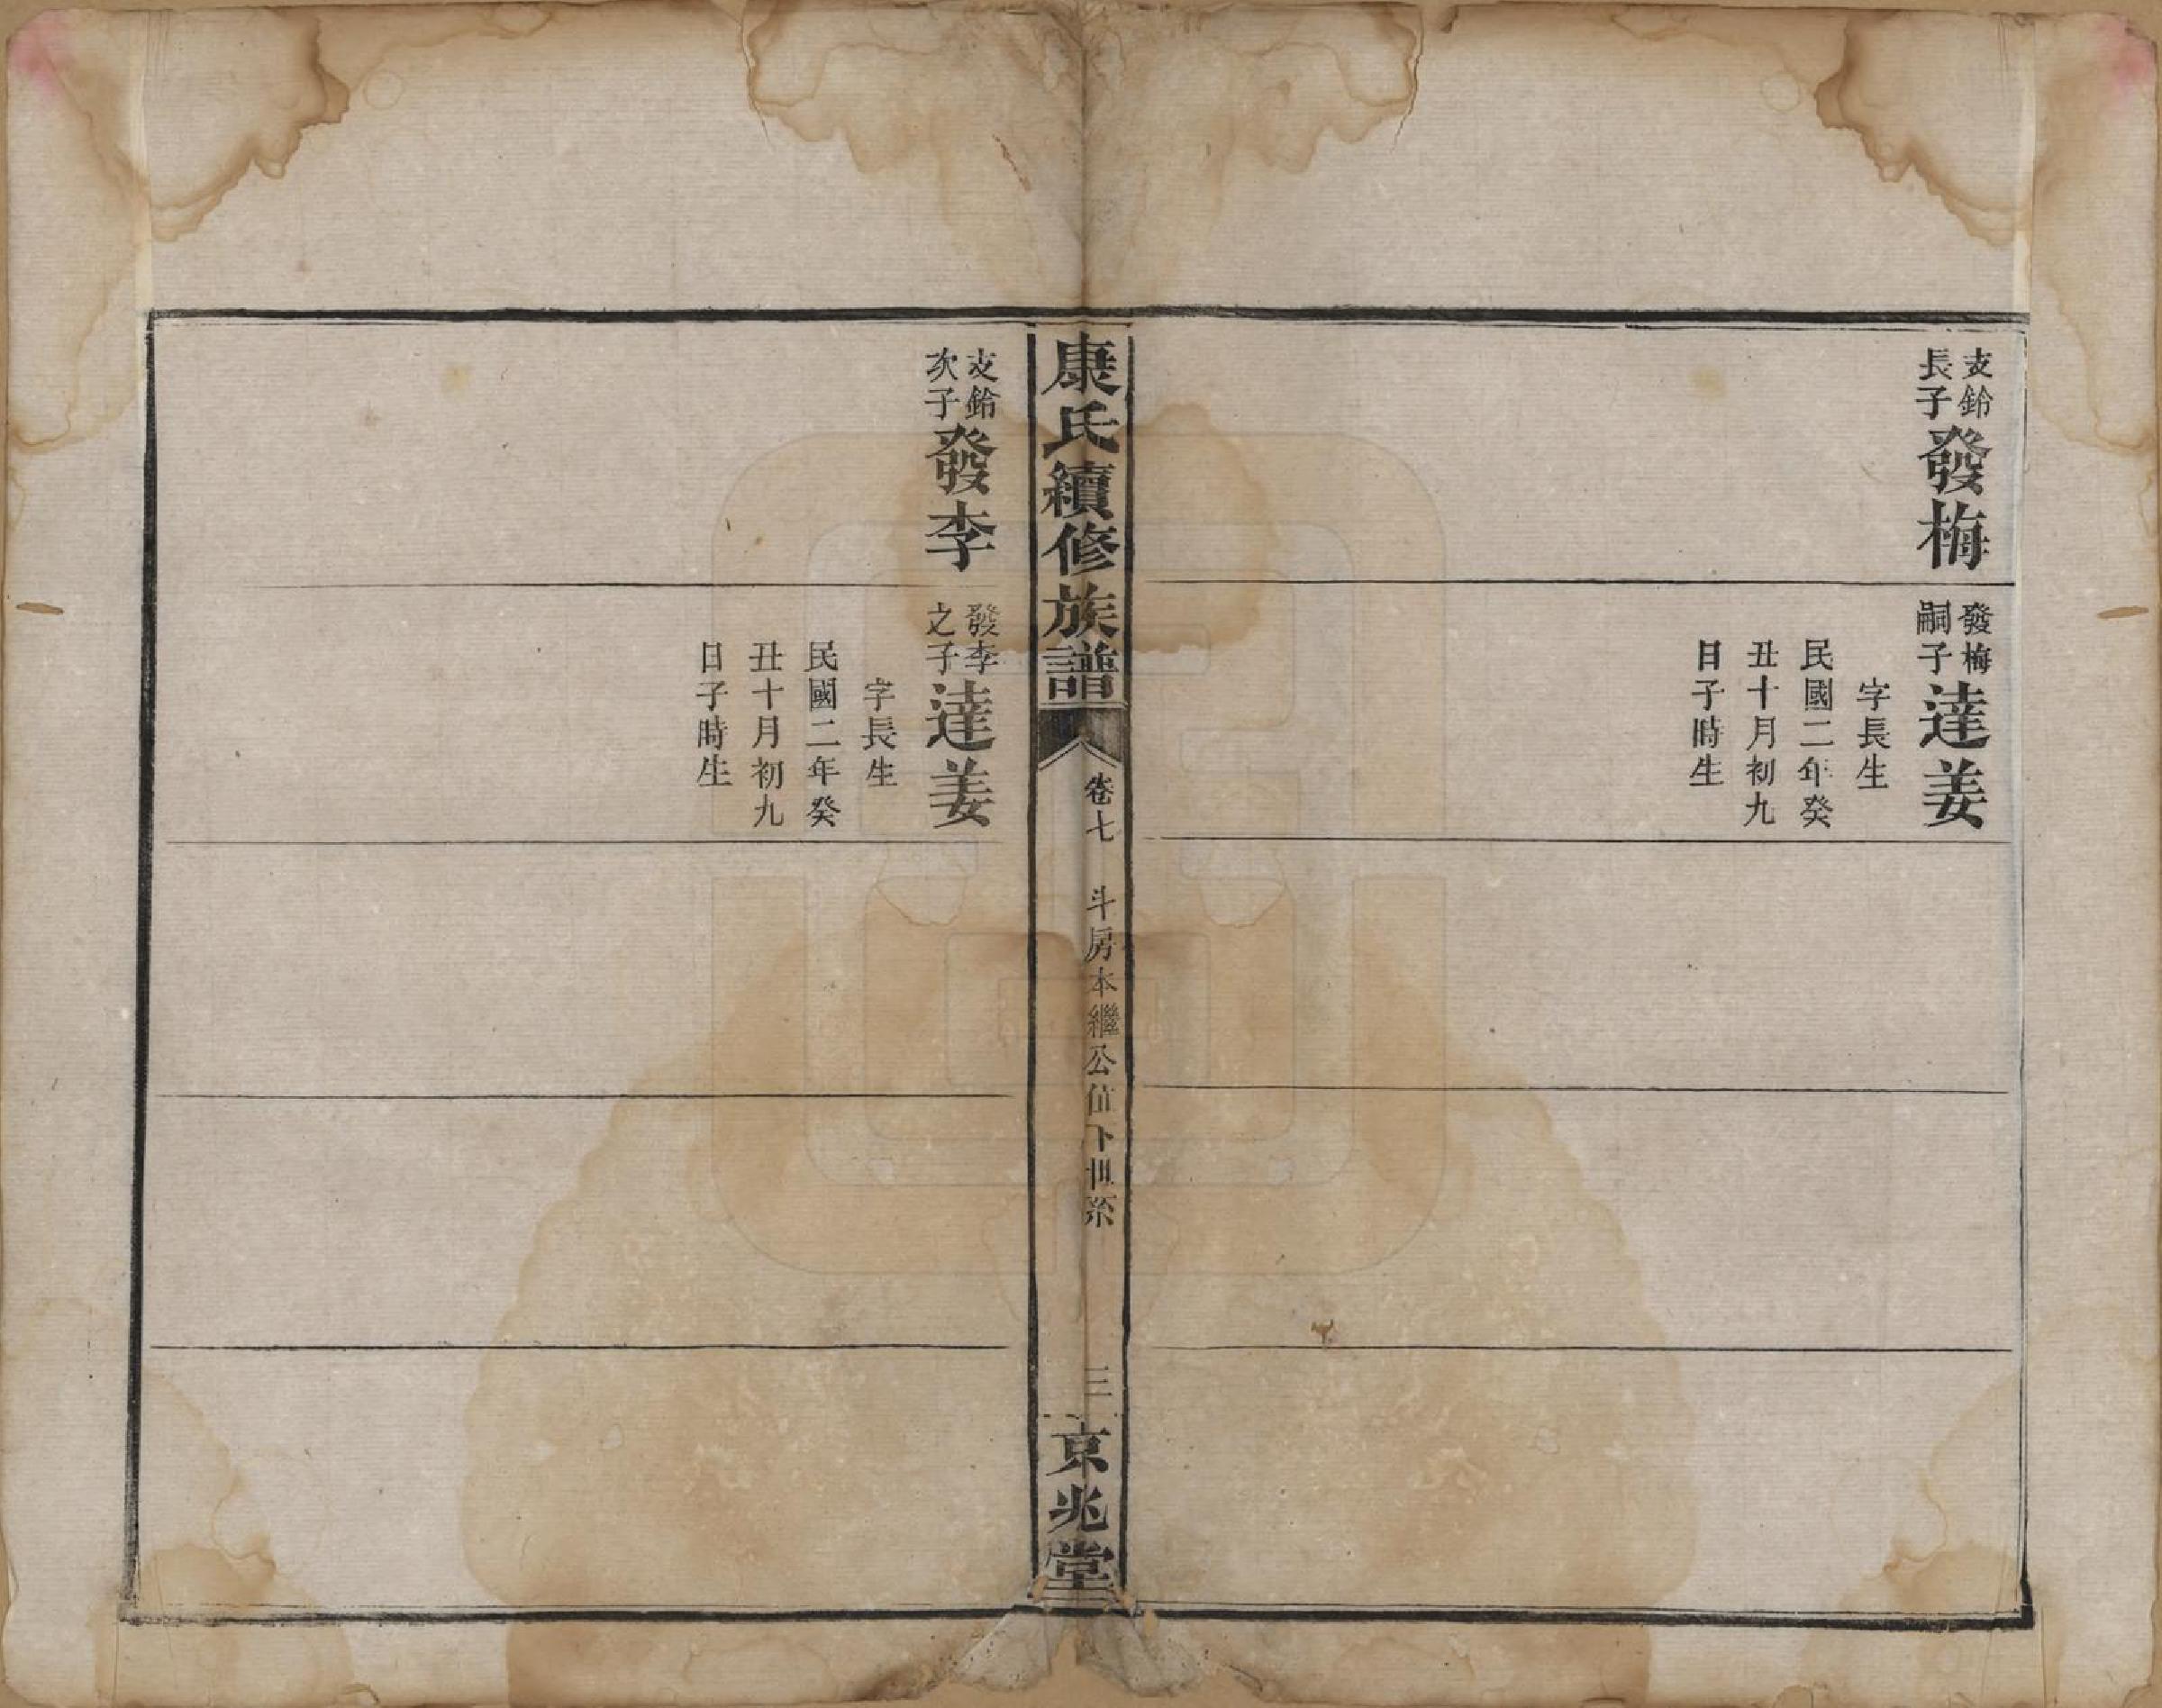 支鈴
長子
發梅
發梅
嗣子
達姜
字長生
民國二年癸
丑十月初九
日子時生
康氏續修族譜
卷七
斗房本繼公值下世系
三
京兆堂
支鈴
次子
發李
發李
之子
達姜
字長生
民國二年癸
丑十月初九
日子時生